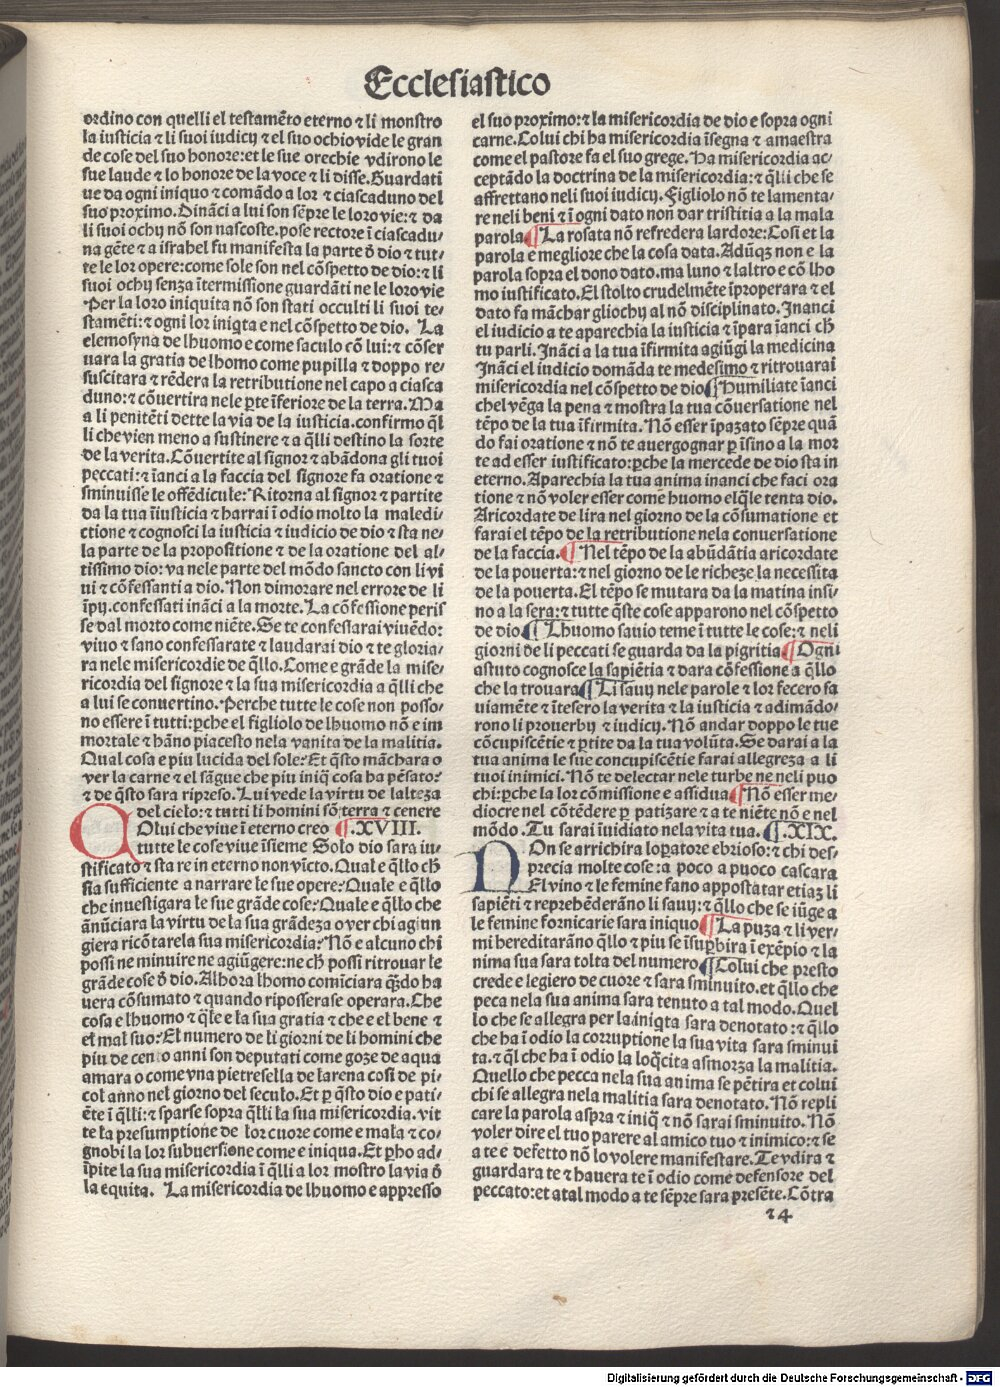 Ecclesiastico
ordino con quelli el testamēto eterno ⁊ li monstro
la iusticia ⁊ li suoi iudicij ⁊ el suo ochio vide le gran
de cose del suo honore: et le sue orechie vdirono le
sue laude ⁊ lo honore de la voce ⁊ li disse. Guardati
ue da ogni iniquo ⁊ comādo a lor ⁊ ciascaduno del
suo proximo. Dināci a lui son sēpre le loro vie: ⁊ da
li suoi ochij nō son nascoste. pose rectore ī ciascadu-
na gēte ⁊ a israhel fu manifesta la parte d̄ dio ⁊ tut-
te le lor opere: come sole son nel cōspetto de dio: ⁊ li
suoi ochij senza ītermissione guardāti ne le loro vie
Per la loro iniquita nō son stati occulti li suoi te-
stamēti: ⁊ ogni lor iniq̄ta e nel cōspetto de dio. La
elemosyna de lhuomo e come saculo cō lui: ⁊ cōser
uara la gratia de lhomo come pupilla ⁊ doppo re-
suscitara ⁊ rēdera la retributione nel capo a ciasca
duno: ⁊ cōuertira nele ꝑte īferiore de la terra. Ma
a li penitēti dette la via de la iusticia. confirmo q̄l
li che vien meno a sustinere ⁊ a q̄lli destino la sorte
de la verita. Cōuertite al signor ⁊ abādona gli tuoi
peccati: ⁊ īanci a la faccia del signore fa oratione ⁊
sminuisse le offēdicule: Ritorna al signor ⁊ partite
da la tua īiusticia ⁊ harrai ī odio molto la maledi-
ctione ⁊ cognosci la iusticia ⁊ iudicio de dio ⁊ sta ne-
la parte de la propositione ⁊ de la oratione del al-
tissimo dio: va nele parte del mōdo sancto con li vi
ui ⁊ cōfessanti a dio. Non dimorare nel errore de li
īpij. confessati ināci a la morte. La cōfessione peris
se dal morto come niēte. Se te confestarai viuēdo:
viuo ⁊ sano confessarate ⁊ laudarai dio ⁊ te gloria-
ra nele misericordie de q̄llo. Come e grāde la mise-
ricordia del signore ⁊ la sua misericordia a q̄lli che
a lui se conuertino. Perche tutte le cose non posso-
no essere ī tutti: ꝑche el figliolo de lhuomo nō e im
mortale ⁊ hāno piacesto nela vanita de la malitia.
Qual cosa e piu lucida del sole: Et q̄sto māchara o
ver la carne ⁊ el sāgue che piu iniq̄ cosa ha pēsato:
⁊ de q̄sto sara ripreso. Lui vede la virtu de lalteza
del cielo: ⁊ tutti li homini sō terra ⁊ cenere
COlui che viue ī eterno creo ¶.XVIII.
tutte le cose viue īsieme Solo dio sara iu-
stificato ⁊ sta re in eterno non vīcto. Qual e q̄llo ch̄
sia sufficiente a narrare le sue opere: Quale e q̄llo
che inuestigara le sue grāde cose: Quale e q̄llo che
ānūciara la virtu de la sua grādeza o ver chi agiun
giera ricōtarela sua misericordia: Nō e alcuno chi
possi ne minuire ne agiūgere: ne ch̄ possi ritrouar le
grāde cose d̄ dio. Alhora lhomo comīciara q̄ndo ha
uera cōsumato ⁊ quando riposserase operara. Che
cosa e lhuomo ⁊ q̄le e la sua gratia ⁊ che e el bene ⁊
el mal suo: El numero de li giorni de li homini che
piu de cento anni son deputati come goze de aqua
amara o come vna pietresella de larena cosi de pi-
col anno nel giorno del seculo. Et ꝑ q̄sto dio e pati-
ēte ī q̄lli: ⁊ sparse sopra q̄lli la sua misericordia. vit
te la presumptione de lor cuore come e mala ⁊ co-
gnobi la lor subuersione come e iniqua. Et ꝑho ad-
īpite la sua misericordia ī q̄lli a lor mostro la via d̄
la equita. La misericordia de lhuomo e appresso
el suo proximo: ⁊ la misericordia de dio e sopra ogni
carne. Colui chi ha misericordia īsegna ⁊ amaestra
come el pastore fa el suo grege. Ha misericordia ac-
ceptādo la doctrina de la misericordia: ⁊ q̄lli che se
affrettano neli suoi iudicij. Figliolo nō te lamenta-
re neli beni ⁊ ī ogni dato non dar tristitia a la mala
parola ¶ La rosata nō refredera lardore: Cosi et la
parola e megliore che la cosa data. Adūqz non e la
parola sopra el dono dato. ma luno ⁊ laltro e cō lho
mo iustificato. El stolto crudelmēte īproperara ⁊ el
dato fa māchar gliochij al nō disciplinato. Inanci
el iudicio a te aparechia la iusticia ⁊ īpara īanci ch̄
tu parli. Ināci a la tua īfirmita agiūgi la medicina
Ināci el iudicio domāda te medesimo ⁊ ritrouarai
misericordia nel cōspetto de dio ¶ Humiliate īanci
chel vēga la pena ⁊ mostra la tua cōuersatione nel
tēpo de la tua īfirmita. Nō esser īpazato sēpre quā
do fai oratione ⁊ nō te auergognar ꝑ īsino a la mor
te ad esser iustificato: ꝑche la mercede de dio sta in
eterno. Aparechia la tua anima inanci che faci ora
tione ⁊ nō voler esser come huomo elq̄le tenta dio.
Aricordate de lira nel giorno de la cōsumatione et
farai el tēpo de la retributione nela conuersatione
de la faccia. ¶ Nel tēpo de la abūdātia aricordate
de la pouerta: ⁊ nel giorno de le richeze la necessita
de la pouerta. El tēpo se mutara da la matina insi-
no a la sera: ⁊ tutte q̄ste cose apparono nel cōspetto
de dio ¶ Lhuomo sauio teme ī tutte le cose: ⁊ neli
giorni de li peccati se guarda da la pigritia ¶ Ogni
astuto cognosce la sapiētia ⁊ dara cōfessione a q̄llo
che la trouara ¶ Li sauij nele parole ⁊ lor fecero sa
uiamēte ⁊ ītesero la verita ⁊ la iusticia ⁊ adimādo-
rono li prouerbij ⁊ iudicij. Nō andar doppo le tue
cōcupiscētie ⁊ ꝑtite da la tua volūta. Se darai a la
tua anima le sue concupiscētie farai allegreza a li
tuoi inimici. Nō te delectar nele turbe ne neli puo
chi: ꝑche la lor cōmissione e assidua ¶ Nō esser me-
diocre nel cōtēdere ꝑ patizare ⁊ a te niēte nō e nel
mōdo. Tu sarai īuidiato nela vita tua. ¶.XIX.
NOn se arrichira loꝑatore ebrioso: ⁊ chi des-
precia molte cose: a poco a puoco cascara
El vino ⁊ le femine fano appostatar etiaz li
sapiēti ⁊ reprehēderāno li sauij: ⁊ q̄llo che se iūge a
le femine fornicarie sara iniquo ¶ La puza ⁊ li ver-
mi bereditarāno q̄llo ⁊ piu se īsuꝑbira ī exēpio ⁊ la
nima sua sara tolta del numero ¶ Colui che presto
crede e legiero de cuore ⁊ sara sminuito. et q̄llo che
peca nela sua anima sara tenuto a tal modo. Quel
lo che se allegra per la iniq̄ta sara denotato: ⁊ q̄llo
che ha ī odio la corruptione la sua vita sara sminui
ta. ⁊ q̄l che ha ī odio la loq̄cita asmorza la malitia.
Quello che pecca nela sua anima se pētira et colui
chi se allegra nela malitia sara denotato. Nō repli
care la parola aspra ⁊ iniq̄ ⁊ nō sarai sminuito. Nō
voler dire el tuo parere al amico tuo ⁊ inimico: ⁊ se
a te e defetto nō lo volere manifestare. Te vdira ⁊
guardara te ⁊ hauera te ī odio come defensore del
peccato: et a tal modo a te sēpre sara presēte. Cōtra
⁊4
Digitalisierung gefördert durch die Deutsche Forschungsgemeinschaft - DFG